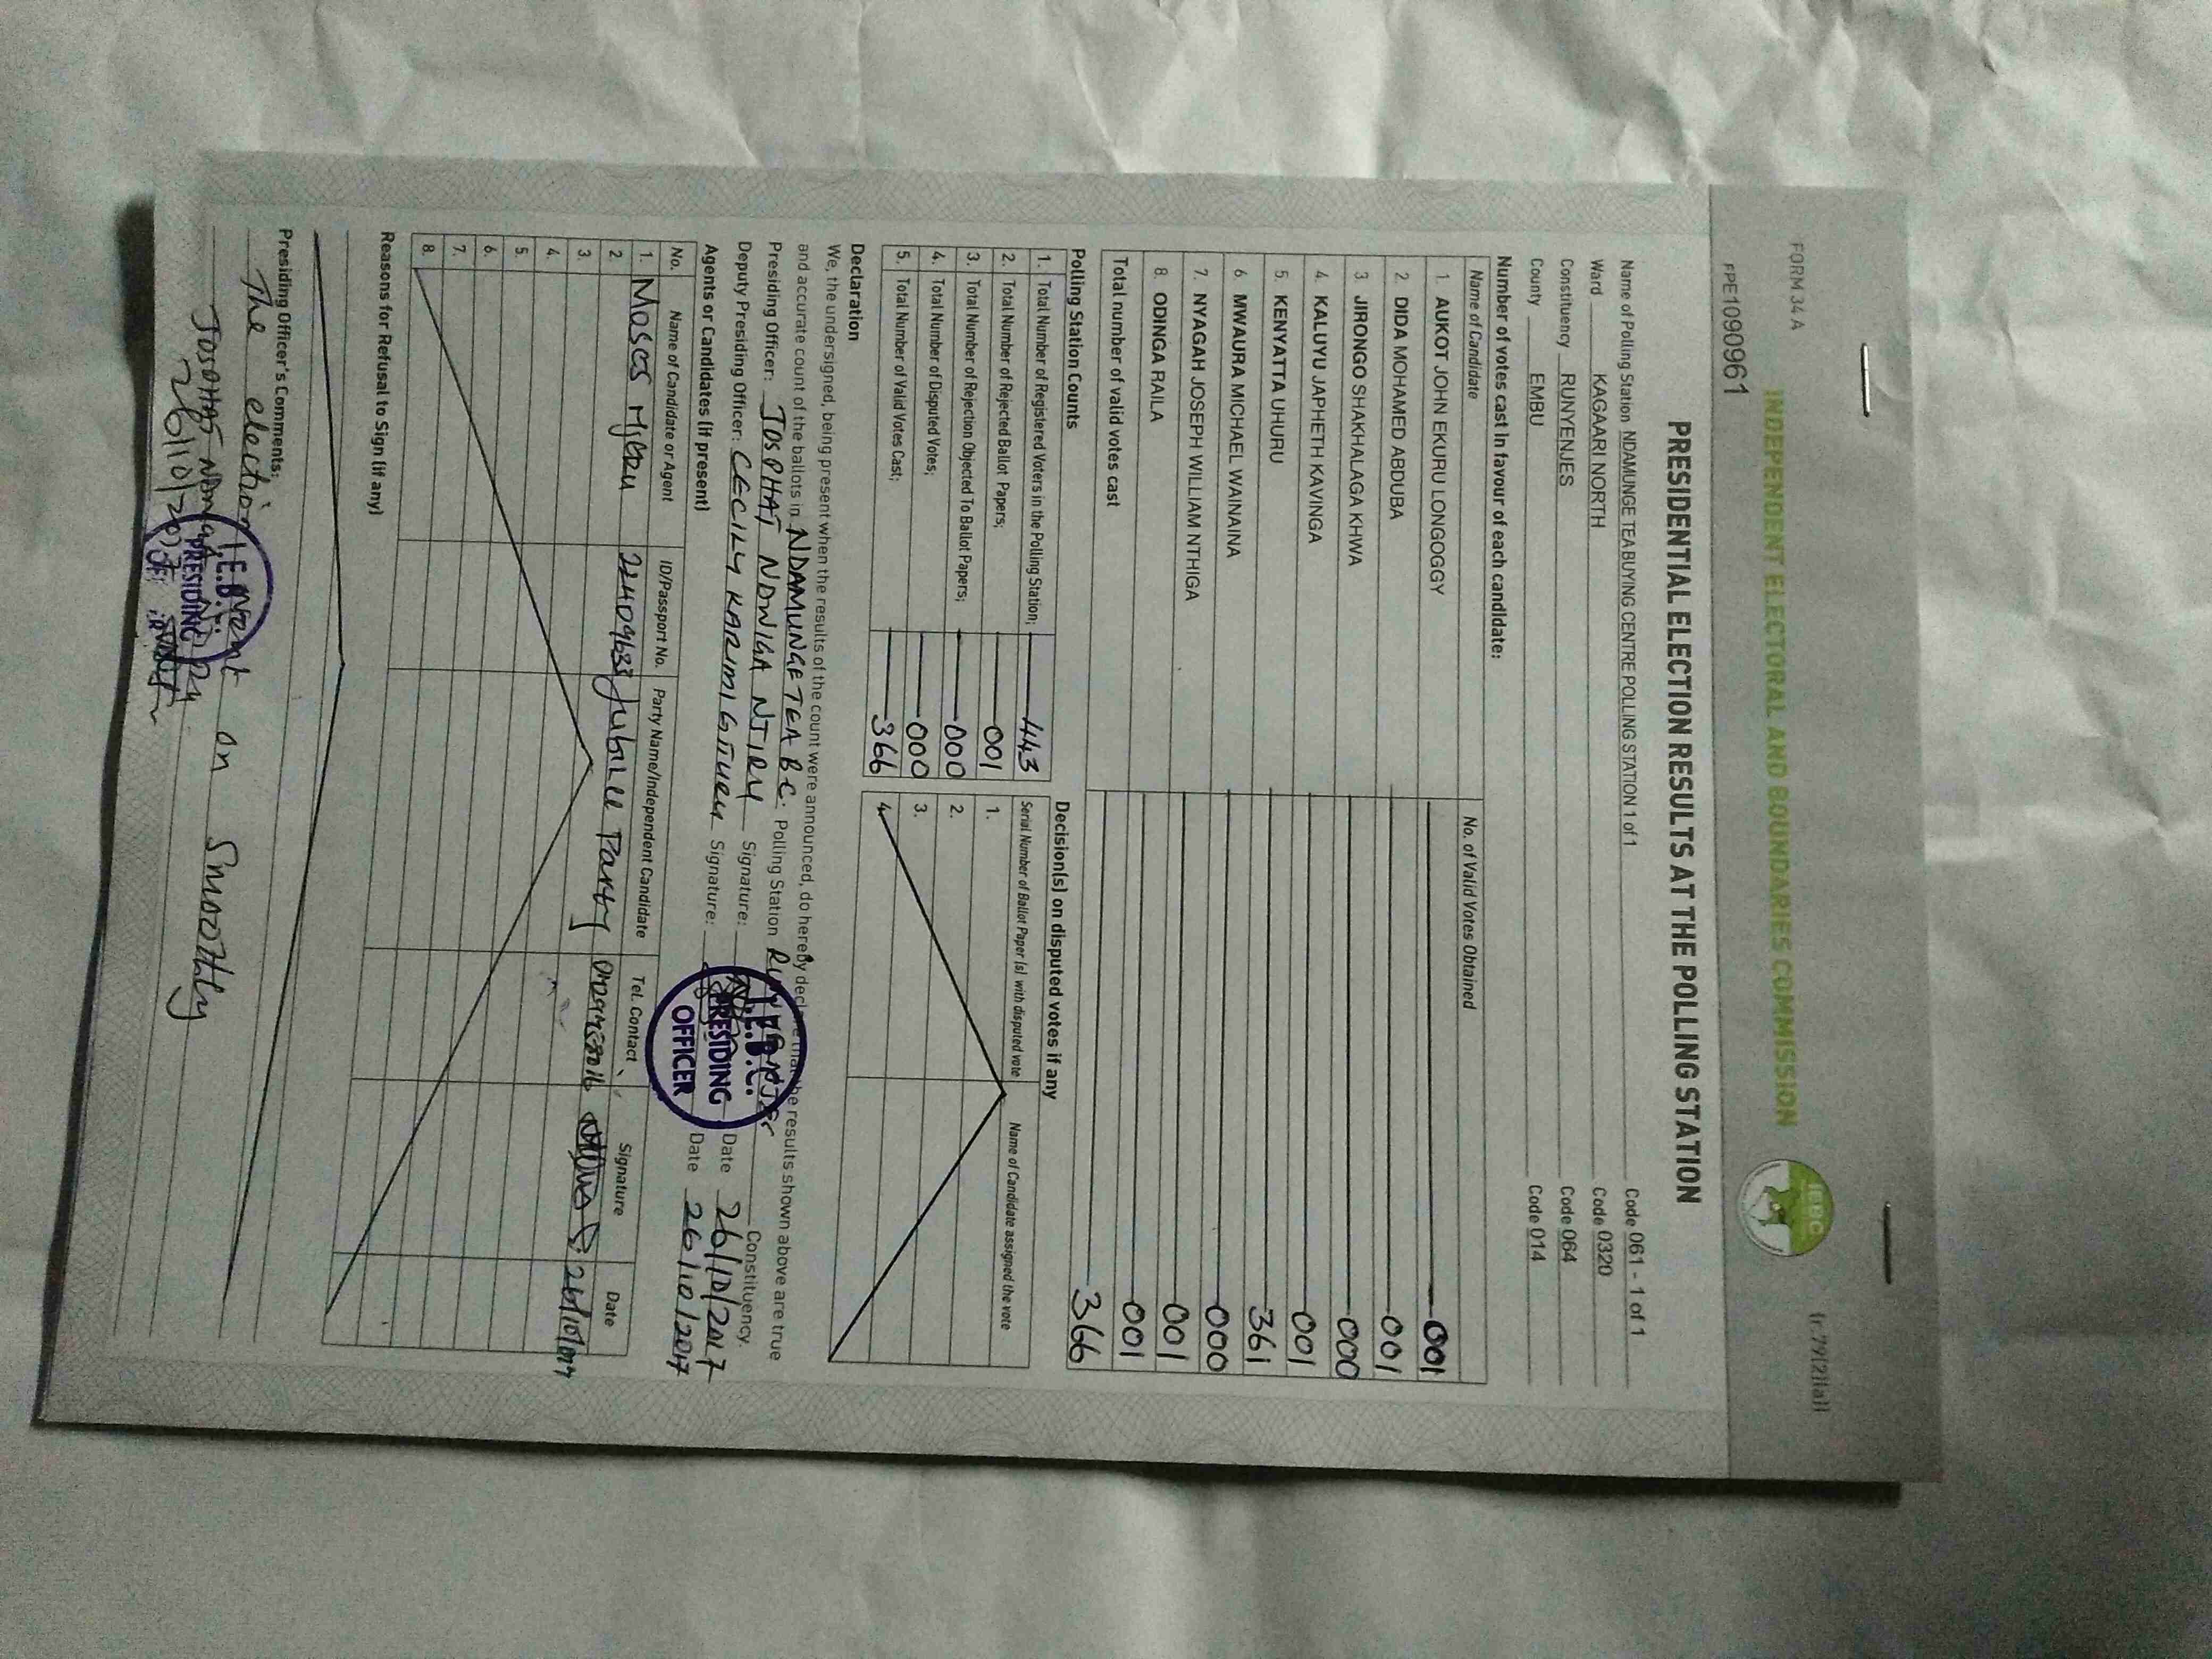 FORM 34 A
(r.79(2)(a))
INDEPENDENT ELECTORAL AND BOUNDARIES COMMISSION
IEBC
FPE1090961
PRESIDENTIAL ELECTION RESULTS AT THE POLLING STATION
Name of Polling Station NDAMUNGE TEA BUYING CENTRE POLLING STATION 1 of 1 Code 061 - 1 of 1
Ward KAGAARI NORTH Code 0320
Constituency RUNYENJES Code 064
County EMBU Code 014
Number of votes cast in favour of each candidate:
Name of Candidate No. of Valid Votes Obtained
1. AUKOT JOHN EKURU LONGOGGY 001
2. DIDA MOHAMED ABDUBA 001
3. JIRONGO SHAKHALAGA KHWA 000
4. KALUYU JAPHETH KAVINGA 001
5. KENYATTA UHURU 361
6 MWAURA MICHAEL WAINAINA 000
7. NYAGAH JOSEPH WILLIAM NTHIGA 001
8. ODINGA RAILA 001
Total number of valid votes cast 366
Polling Station Counts
1. Total Number of Registered Voters in the Polling Station; 443
2. Total Number of Rejected Ballot Papers; 001
3. Total Number of Rejection Objected To Ballot Papers; 000
4. Total Number of Disputed Votes; 000
5. Total Number of Valid Votes Cast; 366
Decision(s) on disputed votes if any
Serial Number of Ballot Paper (s) with disputed vote Name of Candidate assigned the vote
1.
2.
3.
4.
Declaration
We, the undersigned, being present when the results of the count were announced, do hereby declare that the results shown above are true
and accurate count of the ballots in NDAMUNGE TEA B.C. Polling Station Constituency.
Presiding Officer: JOSPHAT NDWIGA NJIRU Signature: Date 26/10/2017
Deputy Presiding Officer: CECILY KARIMI GITHERU Signature: Date 26/10/2017
I.E.B.C.
PRESIDING
OFFICER
Agents or Candidates (if present)
No. Name of Candidate or Agent ID/Passport No. Party Name/Independent Candidate Tel. Contact Signature Date
1. Moses Njeru 22409633 Jubilee Party 26/10/2017
2
3.
4.
5.
6.
7.
8.
Reasons for Refusal to Sign (if any)
Presiding Officer's Comments:
The election went on smoothly
JOSPHAT
26/10/2017
I.E.B.C.
PRESIDING